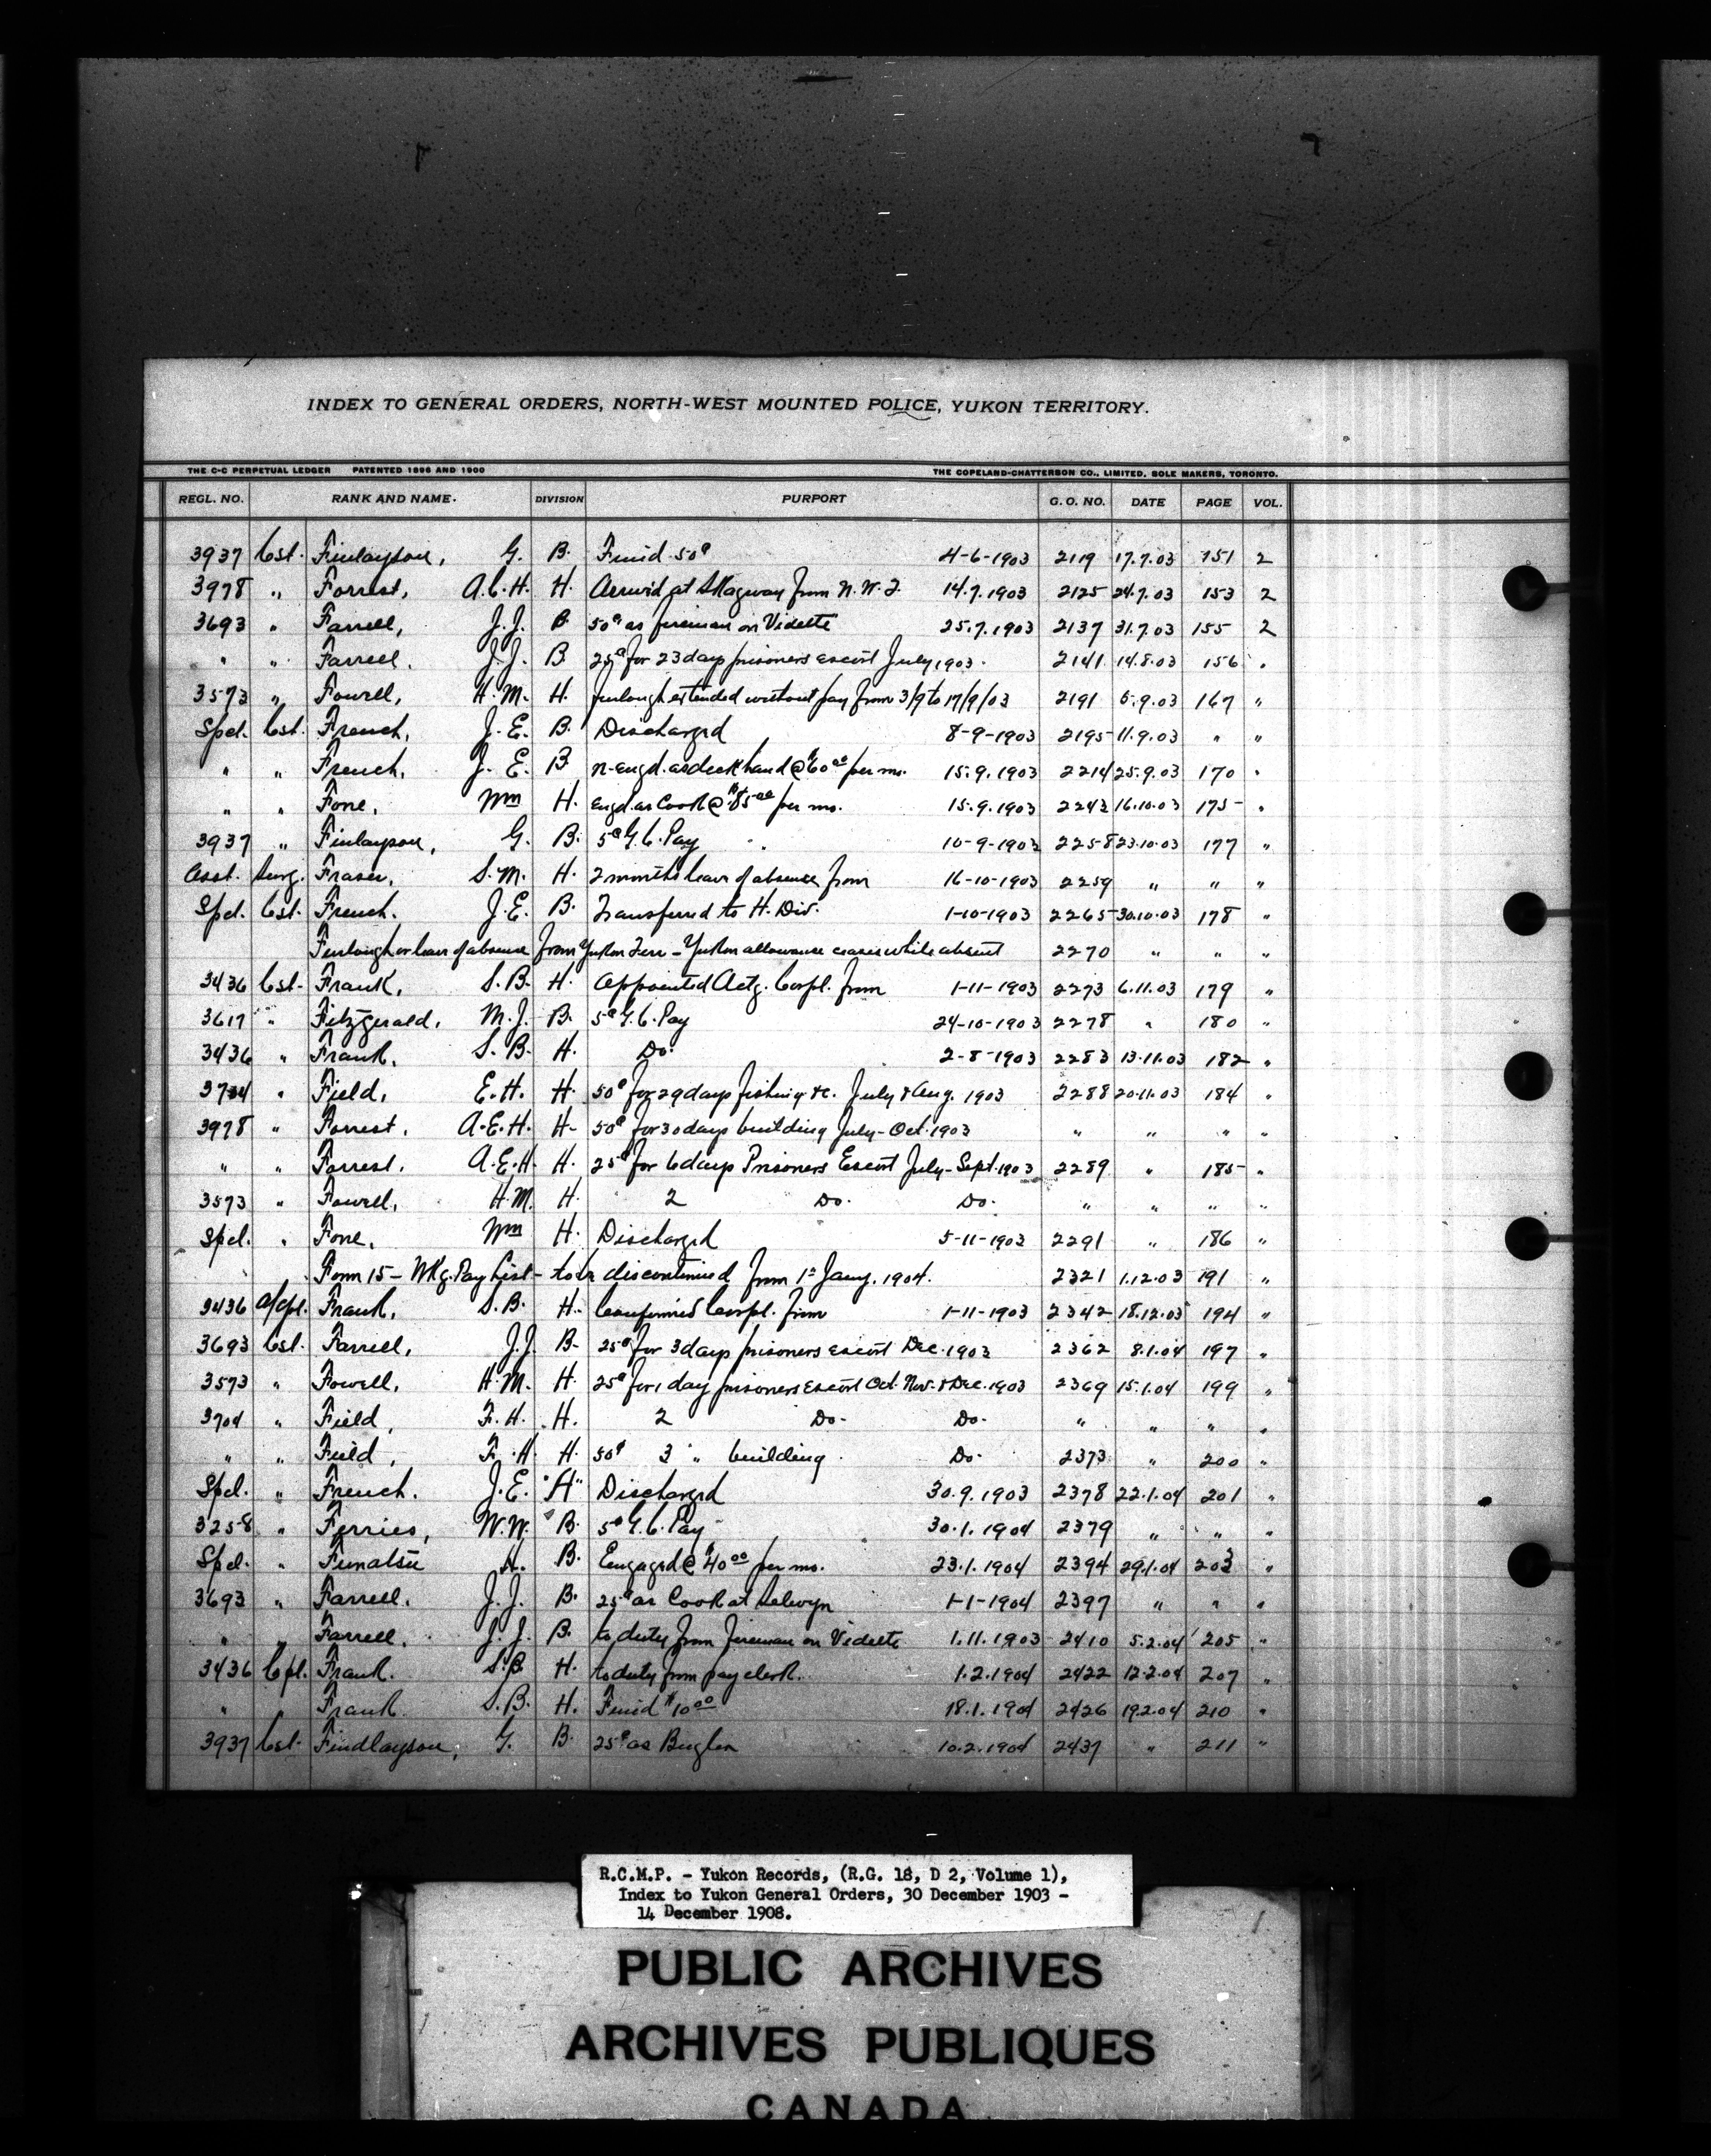 INDEX TO GENERAL ORDERS, NORTH-WEST MOUNTED POLICE, YUKON TERRITORY.
THE C-C PERPETUAL LEDGER PATENTED 1896 AND 1900 THE COPELAND-CHATTERSON CO., LIMITED, SOLE MAKERS, TORONTO.
REGL. NO. RANK AND NAME. DIVISION PURPORT G. O. NO. DATE PAGE VOL.
3937 Cst. Finlayson, G. B. Fined 50¢ 4-6-1903 2119 17.7.03 151 2
3978 „ Forrest, A.C.H. H. Arrived at Skagway from N.W.T. 14.7.1903 2125 24.7.03 153 2
3693 „ Farrell, J.J. B. 50¢ as fireman on Vidette 25.7.1903 2137 31.7.03 155 2
„ „ Farrell. J.J. B. 25¢ for 23 days prisoners escort July 1903. 2141 14.8.03 156 „
3573 „ Fowell, H.M. H. furlough extended without pay from 3/9 to 17/9/03 2191 5.9.03 167 „
Spel. Cst. French, J.E. B. Discharged 8-9-1903 2195 11.9.03 „ „
„ „ French, J.E. B n-engd. as deck hand @ $60 00 per mo. 15.9.1903 2214 25.9.03 170 „
„ „ Fone, Wm H. Engd. as Cook @ $85 00 per mo. 15.9.1903 2242 16.10.03 175 „
3937 „ Finlayson, G. B. 5¢ G.C. Pay 10-9-1903 2258 23.10.03 177 „
Asst. Surg. Fraser, S.M. H. 2 months leave of absence from 16-10-1903 2259 „ „ „
Spel. Cst. French. J.E. B. Transferred to H. Div. 1-10-1903 2265 30.10.03 178 „
Furlough or leave of absence from Yukon Terr - Yukon allowance ceases while absent 2270 „ „ „
3436 Cst. Frank, S.B. H. Appointed Actg. Corpl. from 1-11-1903 2273 6.11.03 179 „
3617 „ Fitzgerald, M.J. B. 5¢ G.C. Pay 24-10-1903 2278 „ 180 „
3436 „ Frank, S.B. H. Do. 2-8-1903 2283 13.11.03 182 „
3704 „ Field, E.H. H. 50¢ for 29 days fishing &c. July & Aug. 1903 2288 20.11.03 184 „
3978 „ Forrest, A.E.H. H. 50¢ for 30 days building July - Oct. 1903 „ „ „ „
„ „ Forrest. A.E.H. H. 25¢ for 6 days Prisoners Escort July - Sept. 1903 2289 „ 185 „
3573 „ Fowell, H.M. H. 2 Do. Do. „ „ „ „
Spel. „ Fone, Wm H. Discharged 5-11-1903 2291 „ 186 „
Form 15 - Wkg. Pay List - to be discontinued from 1st Jany. 1904. 2321 1.12.03 191 „
3436 A/Cpl. Frank, S.B. H. Confirmed Corpl. from 1-11-1903 2342 18.12.03 194 „
3693 Cst. Farrell, J.J. B. 25¢ for 3 days prisoners escort Dec. 1903 2362 8.1.04 197 „
3573 „ Fowell, H.M. H. 25¢ for 1 day prisoners Escort Oct. Nov. & Dec. 1903 2369 15.1.04 199 „
3704 „ Field, F.H. H. 2 Do. Do. „ „ „ „
„ „ Field, F.H. H. 50¢ 3 „ building Do. 2373 „ 200 „
Spel. „ French. J.E. "H" Discharged 30.9.1903 2378 22.1.04 201 „
3258 „ Ferries, W.W. B. 5¢ G.C. Pay 30.1.1904 2379 „ „ „
Spel. „ Funatsu H. B. Engaged @ $40 00 per mo. 23.1.1904 2394 29.1.04 203 „
3693 „ Farrell. J.J. B. 25¢ as Cook at Selwyn 1-1-1904 2397 „ „ „
„ „ Farrell. J.J. B. to duty from fireman on Vidette 1.11.1903 2410 5.2.04 205 „
3436 Cpl. Frank. S.B. H. to duty from pay clerk. 1.2.1904 2422 12.2.04 207 „
„ Frank. S.B. H. Fined $10 00 18.1.1904 2426 19.2.04 210 „
3937 Cst. Findlayson, G. B. 25¢ as Bugler 10.2.1904 2437 „ 211 „
R.C.M.P. - Yukon Records, (R.G. 18, D 2, Volume 1),
Index to Yukon General Orders, 30 December 1903 -
14 December 1908.
PUBLIC ARCHIVES
ARCHIVES PUBLIQUES
CANADA